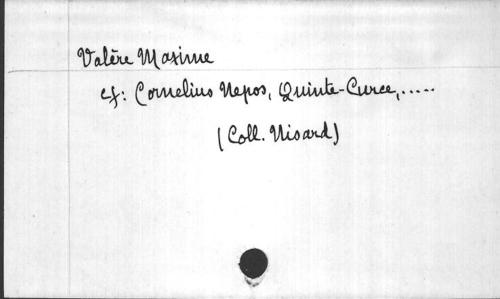 Valère Maxime
cf: Cornelius Nepos, Quinte-Curce,.....
(Coll. Nisard)